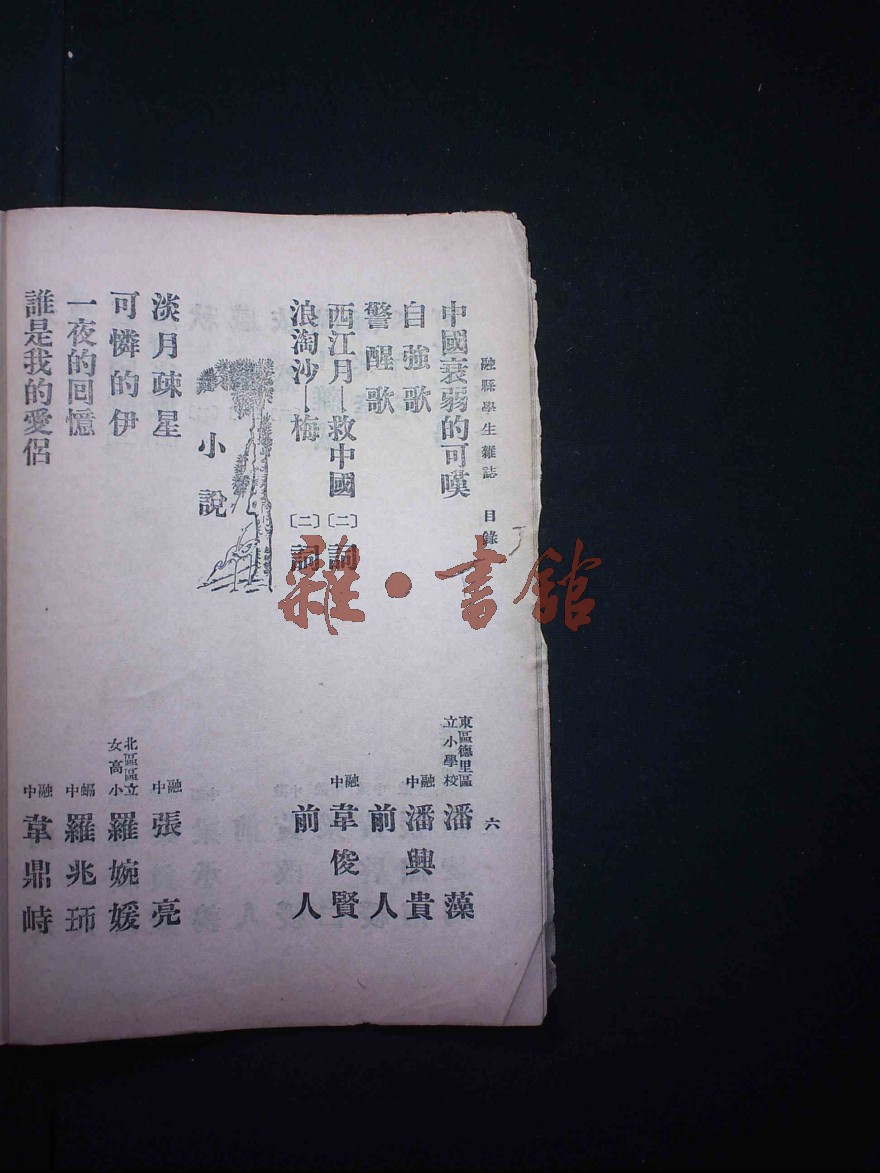 融縣學生雜誌 目錄 六
中國衰弱的可嘆 東區德里區立小學校 潘藻
自強歌 融中 潘興貴
警醒歌 前人
西江月—救中國〔二〕詞 融中 韋俊賢
浪淘沙—梅〔二〕詞 前人
小說
淡月疎星 融中 張亮
可憐的伊 北區區立女高小 羅婉媛
一夜的回憶 中 羅兆
誰是我的愛侶 融中 韋鼎峙
雜·書館